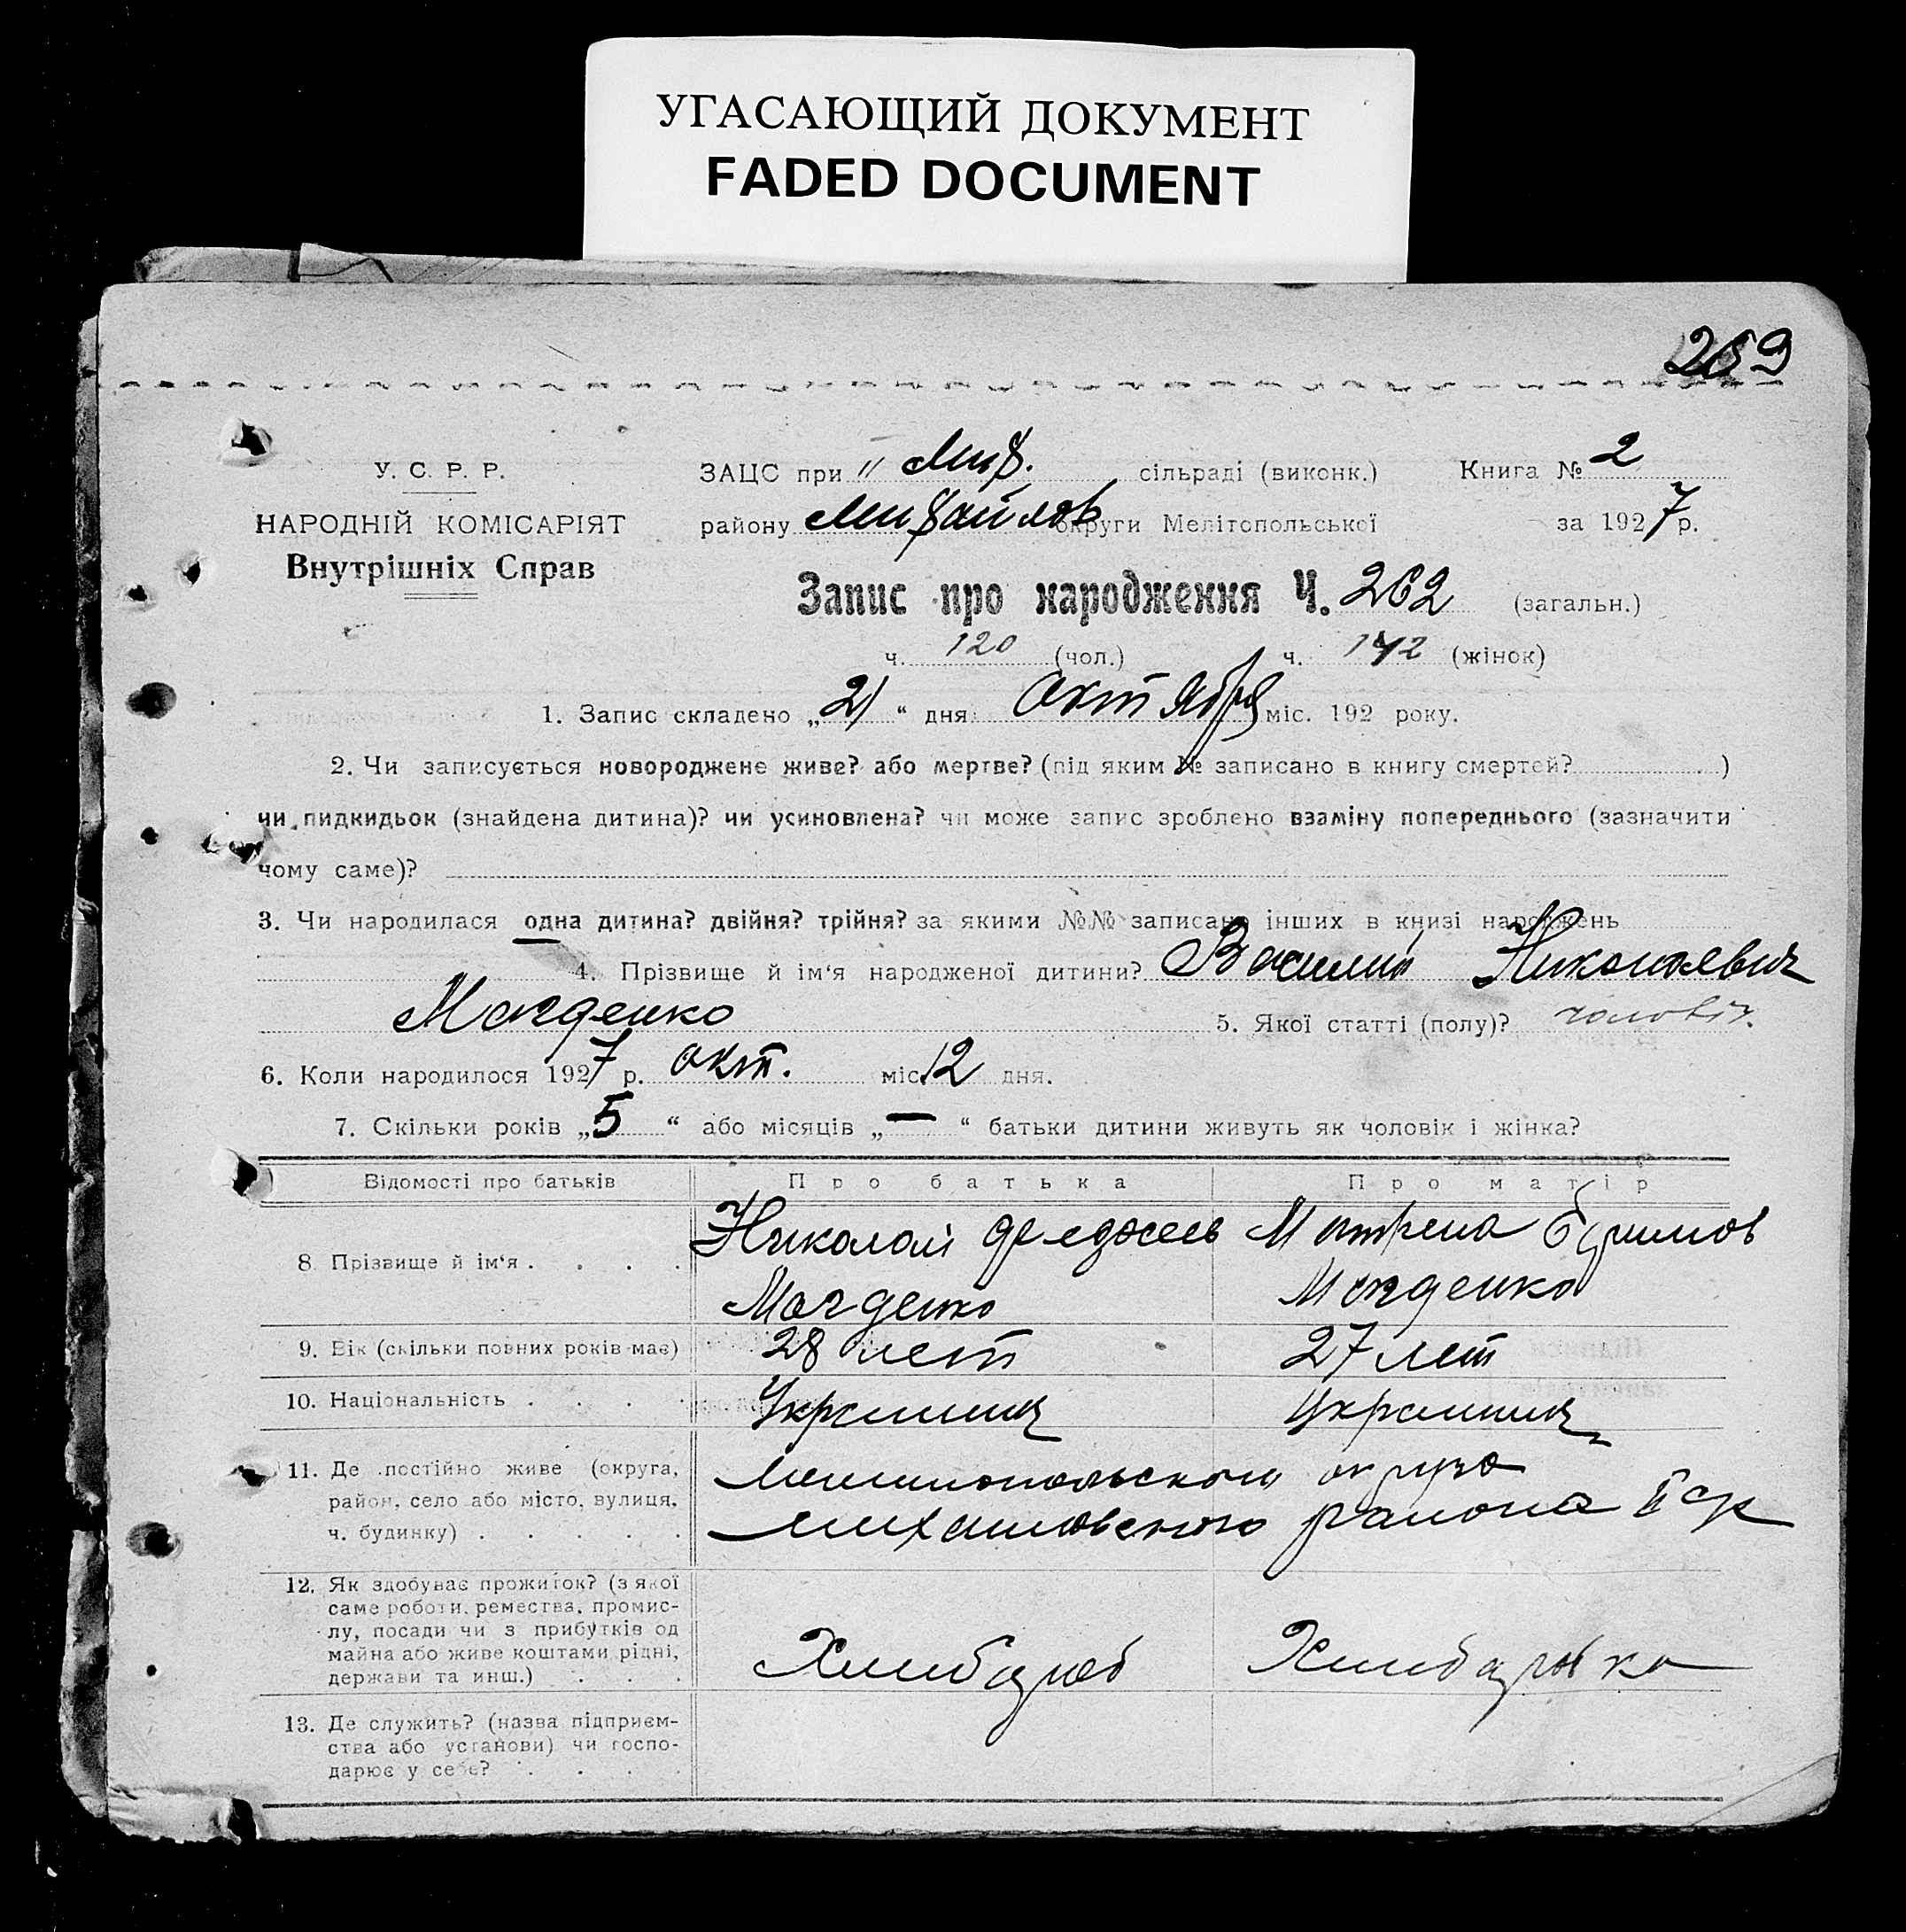 УГАСАЮЩИЙ ДОКУМЕНТ
FADED DOCUMENT
269
У. С. Р. Р.
НАРОДНІЙ КОМІСАРІЯТ
Внутрішніх Справ
ЗАЦС при II Мих. сільраді (виконк.) Книга № 2
району Михайлов округи Мелітопольської за 1927 р.
Запис про народження Ч. 262 (загальн.)
ч. 120 (чол.) ч. 142 (жінок)
1. Запис складено „21“ дня октября міс. 192 року.
2. Чи записується новороджене живе? або мертве? (під яким № записано в книгу смертей? )
чи пидкидьок (знайдена дитина)? чи усиновлена? чи може запис зроблено взаміну попереднього (зазначити
чому саме)?
3. Чи народилася одна дитина? двійня? трійня? за якими №№ записано інших в книзі народжень
4. Прізвище й ім‘я народженої дитини? Василий Николаевич
Магденко 5. Якої статті (полу)? чоловіч.
6. Коли народилося 1927 р. окт. міс. 12 дня.
7. Скільки років „5“ або місяців „—“ батьки дитини живуть як чоловік і жінка?
Відомості про батьків Про батька Про матір
8. Прізвище й ім‘я . . . . Николай Матрена
Магденко Магденко
9. Вік (скільки повних років має) 28 лет 27 лет
10. Національність . . . . Украинец Украинец
11. Де постійно живе (округа,
район, село або місто, вулиця,
ч. будинку) . . . . .
Мелитопольского округа
Михайловского района II
12. Як здобуває прожиток? (з якої
саме роботи, ремества, промис-
лу, посади чи з прибутків од
майна або живе коштами рідні,
держави та инш.) . . .
Хлибороб Хлибаробка
13. Де служить? (назва підприєм-
ства або установи) чи госпо-
дарює у себе? . . . .